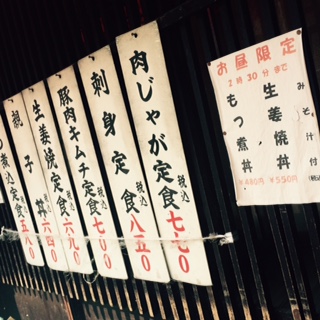 お昼限定
2時30分まで
みそ汁付
生姜焼丼 ¥550円
もつ煮丼 ¥480円
(税込
肉じゃが定食 税込 七七〇
刺身定食 税込 八五〇
豚肉キムチ定食 税込 七〇〇
生姜焼定食 税込 六九〇
親子丼 税込 六四〇
つ煮込定食 五八〇